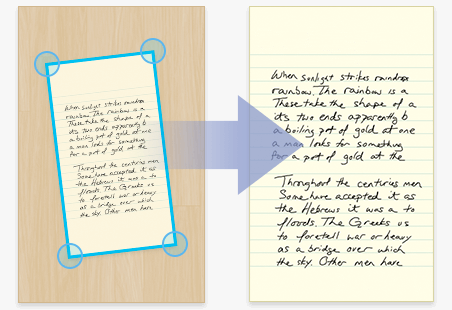 When sunlight strikes raindrop
rainbow. The rainbow is a
These take the shape of a
its two ends apparently b
a boiling pot of gold at one
a man looks for something
for a pot of gold at the
Throughout the centuries men
Some have accepted it as
the Hebrews it was a to
floods. The Greeks us
to foretell war or heavy
as a bridge over which
the sky. Other men have
When sunlight strikes raindrop
rainbow. The rainbow is a
These take the shape of a
its two ends apparently b
a boiling pot of gold at one
a man looks for something
for a pot of gold at the
Throughout the centuries men
Some have accepted it as
the Hebrews it was a to
floods. The Greeks us
to foretell war or heavy
as a bridge over which
the sky. Other men have